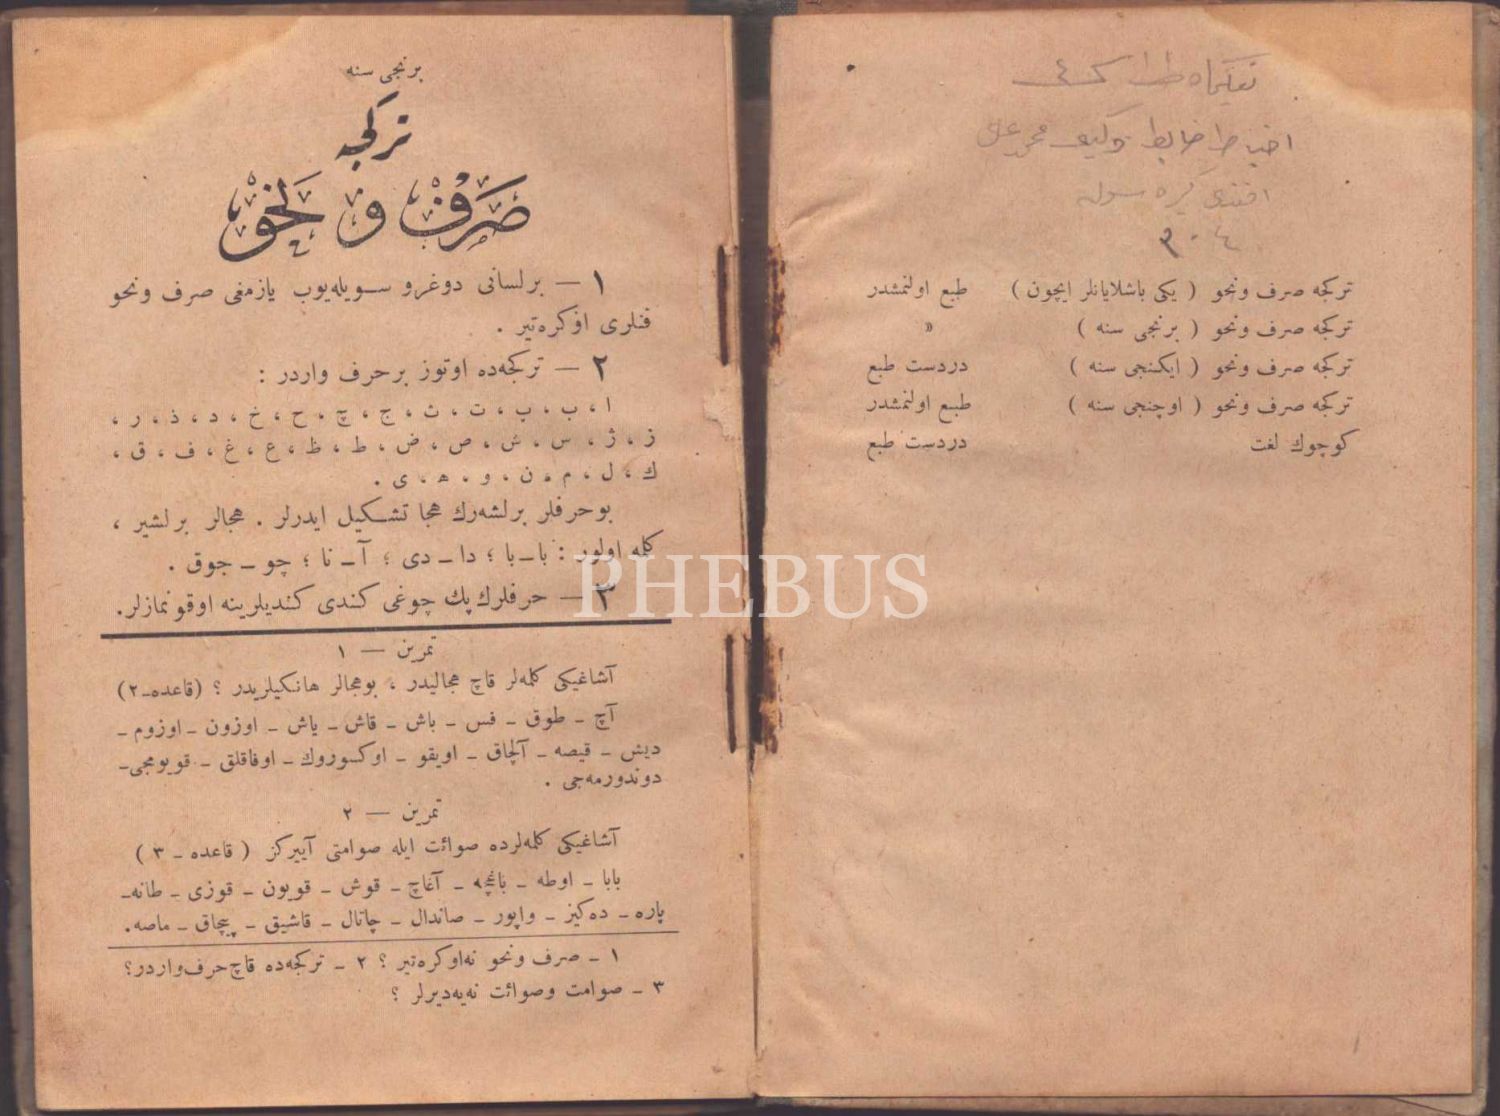 تركجه صرف ونحو ( يكى باشلايانلر ايچون ) طبع اولنمشدر
تركجه صرف ونحو ( برنجى سنه ) »
تركجه صرف ونحو ( ايكنجى سنه ) دردست طبع
تركجه صرف ونحو ( اوچنجى سنه ) طبع اولنمشدر
كوچوك لغت دردست طبع
برنجى سنه
تركجه
صرف و نحو
١ — برلسانى دوغرو سويله‌يوب يازمغى صرف ونحو
فنلرى اوكره‌تير .
٢ — تركجه‌ده اوتوز برحرف واردر :
ا ، ب ، پ ، ت ، ث ، ج ، چ ، ح ، خ ، د ، ذ ، ر ،
ز ، ژ ، س ، ش ، ص ، ض ، ط ، ظ ، ع ، غ ، ف ، ق ،
ك ، ل ، م ، ن ، و ، ه ، ى .
بوحرفلر برلشه‌رك هجا تشكيل ايدرلر . هجالر برلشير ،
كلمه اولور : باـبا ؛ داـدى ؛ آـنا ؛ چوـجوق .
٣ — حرفلرك پك چوغى كندى كنديلرينه اوقونمازلر.
تمرين — ١
آشاغيكى كلمه‌لر قاچ هجاليدر ، بوهجالر هانكيلريدر ؟ (قاعده ـ ٢)
آچ ـ طوق ـ فس ـ باش ـ قاش ـ ياش ـ اوزون ـ اوزوم ـ
ديش ـ قيصه ـ آلچاق ـ اويقو ـ اوكسوروك ـ اوفاقلق ـ قويومجى ـ
دوندورمه‌جى .
تمرين — ٢
آشاغيكى كلمه‌لرده صوائت ايله صوامتى آييركز ( قاعده ـ ٣ )
بابا ـ اوطه ـ باغچه ـ آغاچ ـ قوش ـ قويون ـ قوزى ـ طانه ـ
پاره ـ ده‌كيز ـ واپور ـ صاندال ـ چاتال ـ قاشيق ـ بيچاق ـ ماصه.
١ ـ صرف ونحو نه‌اوكره‌تير ؟ ٢ ـ تركجه‌ده قاچ حرف‌واردر؟
٣ ـ صوامت وصوائت نه‌يه‌ديرلر ؟
PHEBUS